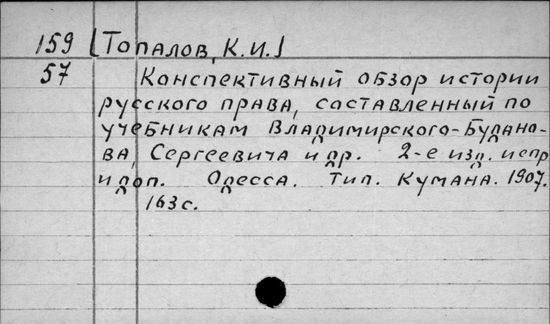 159 [Топалов, К.И.]
57 Конспективный обзор истории
русского права, составленный по
учебникам Владимирского-Будано-
ва, Сергеевича и др. 2-е изд. испр
и доп. Одесса. Тип. Кумана. 1907.
163 с.